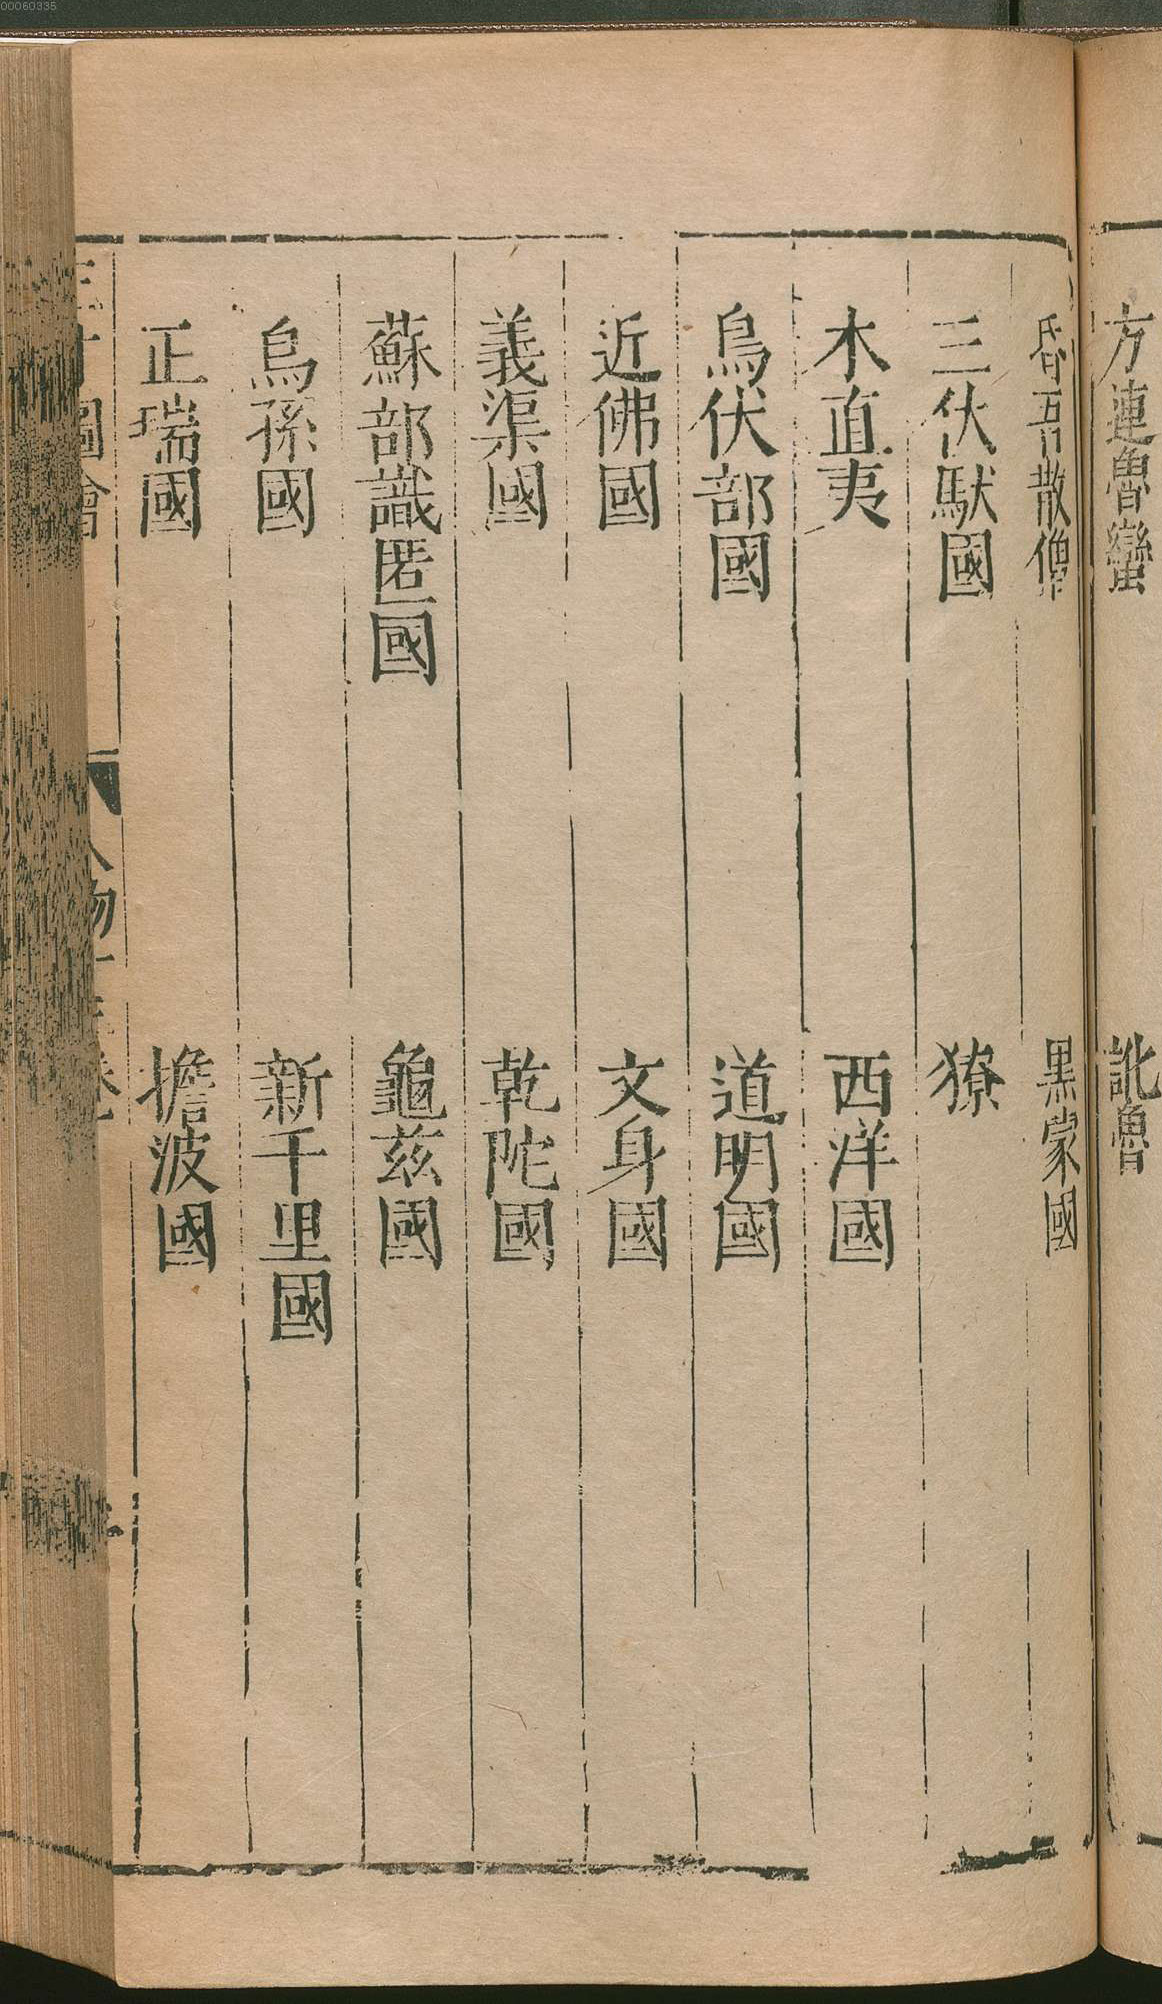 00060335
方連魯蠻　訛魯
昏吾散僧　黒蒙國
三伏馱國　獠
木直夷　西洋國
烏伏部國　道明國
近佛國　文身國
義渠國　乾陀國
蘇部識匿國　龜茲國
烏孫國　新千里國
正瑞國　擔波國
圖會　人物